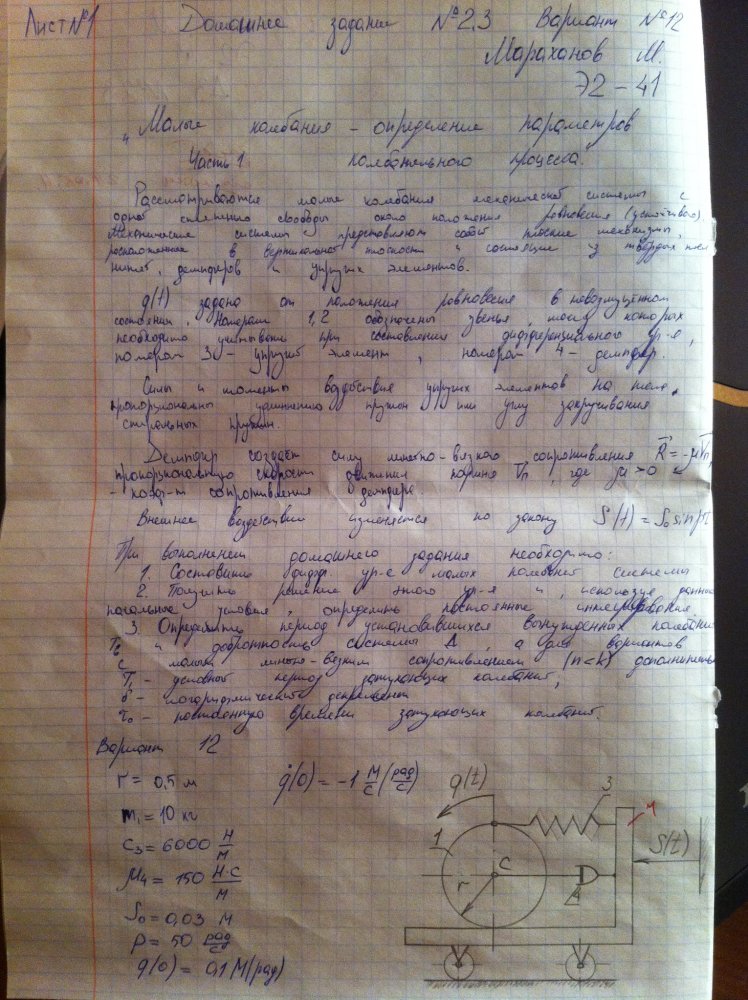 Лист №1
Домашнее задание №2,3 Вариант №12
Мараханов М.
Э2-41
„Малые колебания - определение параметров
Часть 1 колебательного процесса.
Рассматриваются малые колебания механической системы с
одной степенью свободы около положения равновесия (устойчивого).
Механические системы представляют собой плоские механизмы,
расположенные в вертикальной плоскости и состоящие из твердых тел
нитей, демпферов и упругих элементов.
q(t) задано от положения равновесия в невозмущённом
состоянии. Номерами 1,2 обозначены звенья, массы которых
необходимо учитывать при составлении дифференциального ур-я,
номером 3 - упругий элемент, номером 4 - демпфер.
Силы и моменты воздействия упругих элементов на тела
пропорциональны удлинению пружин или углу закручивания
спиральных пружин.
Демпфер создаёт силу линейно-вязкого сопротивления R = -μVп,
пропорциональную скорости движения поршня Vп, где μ > 0
- коэф-т сопротивления демпфера.
Внешнее воздействие изменяется по закону S(t) = S₀ sin pt
При выполнении домашнего задания необходимо:
1. Составить дифф. ур-е малых колебаний системы
2. Получить решение этого ур-я и, используя данные
начальные условия, определить постоянные интегрирования.
3. Определить период установившихся вынужденных колебаний
Tв и добротность системы Д, а для вариантов
с малым линейно-вязким сопротивлением (n<k) дополнительно
T₁ - условный период затухающих колебаний,
δ - логарифмический декремент
τ₀ - постоянную времени затухающих колебаний.
Вариант 12
r = 0,5 м q̇(0) = -1 м/с (рад/с)
m₁ = 10 кг
c₃ = 6000 Н/м
μ₄ = 150 Н·с/м
S₀ = 0,03 м
p = 50 рад/с
q(0) = 0,1 м(рад)
q(t)
3
1
C
S(t)
r
4